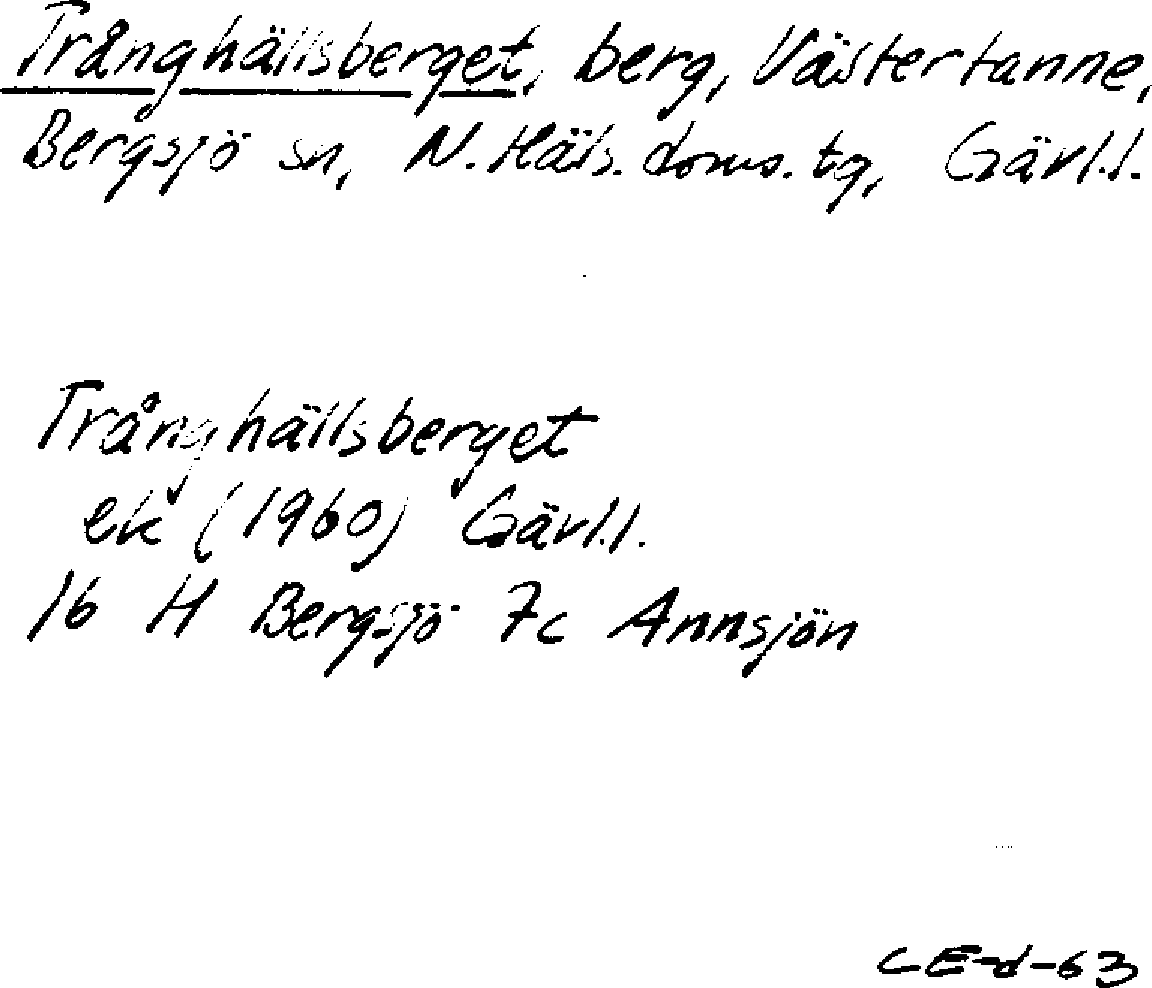 Trånghällsberget, berg, Västertanne,
Bergsjö sn, N. Häls. doms. tg, Gävl.l.
Trånghällsberget
ek (1960) Gävl.l.
16 H Bergsjö 7c Annsjön
CE-d-63